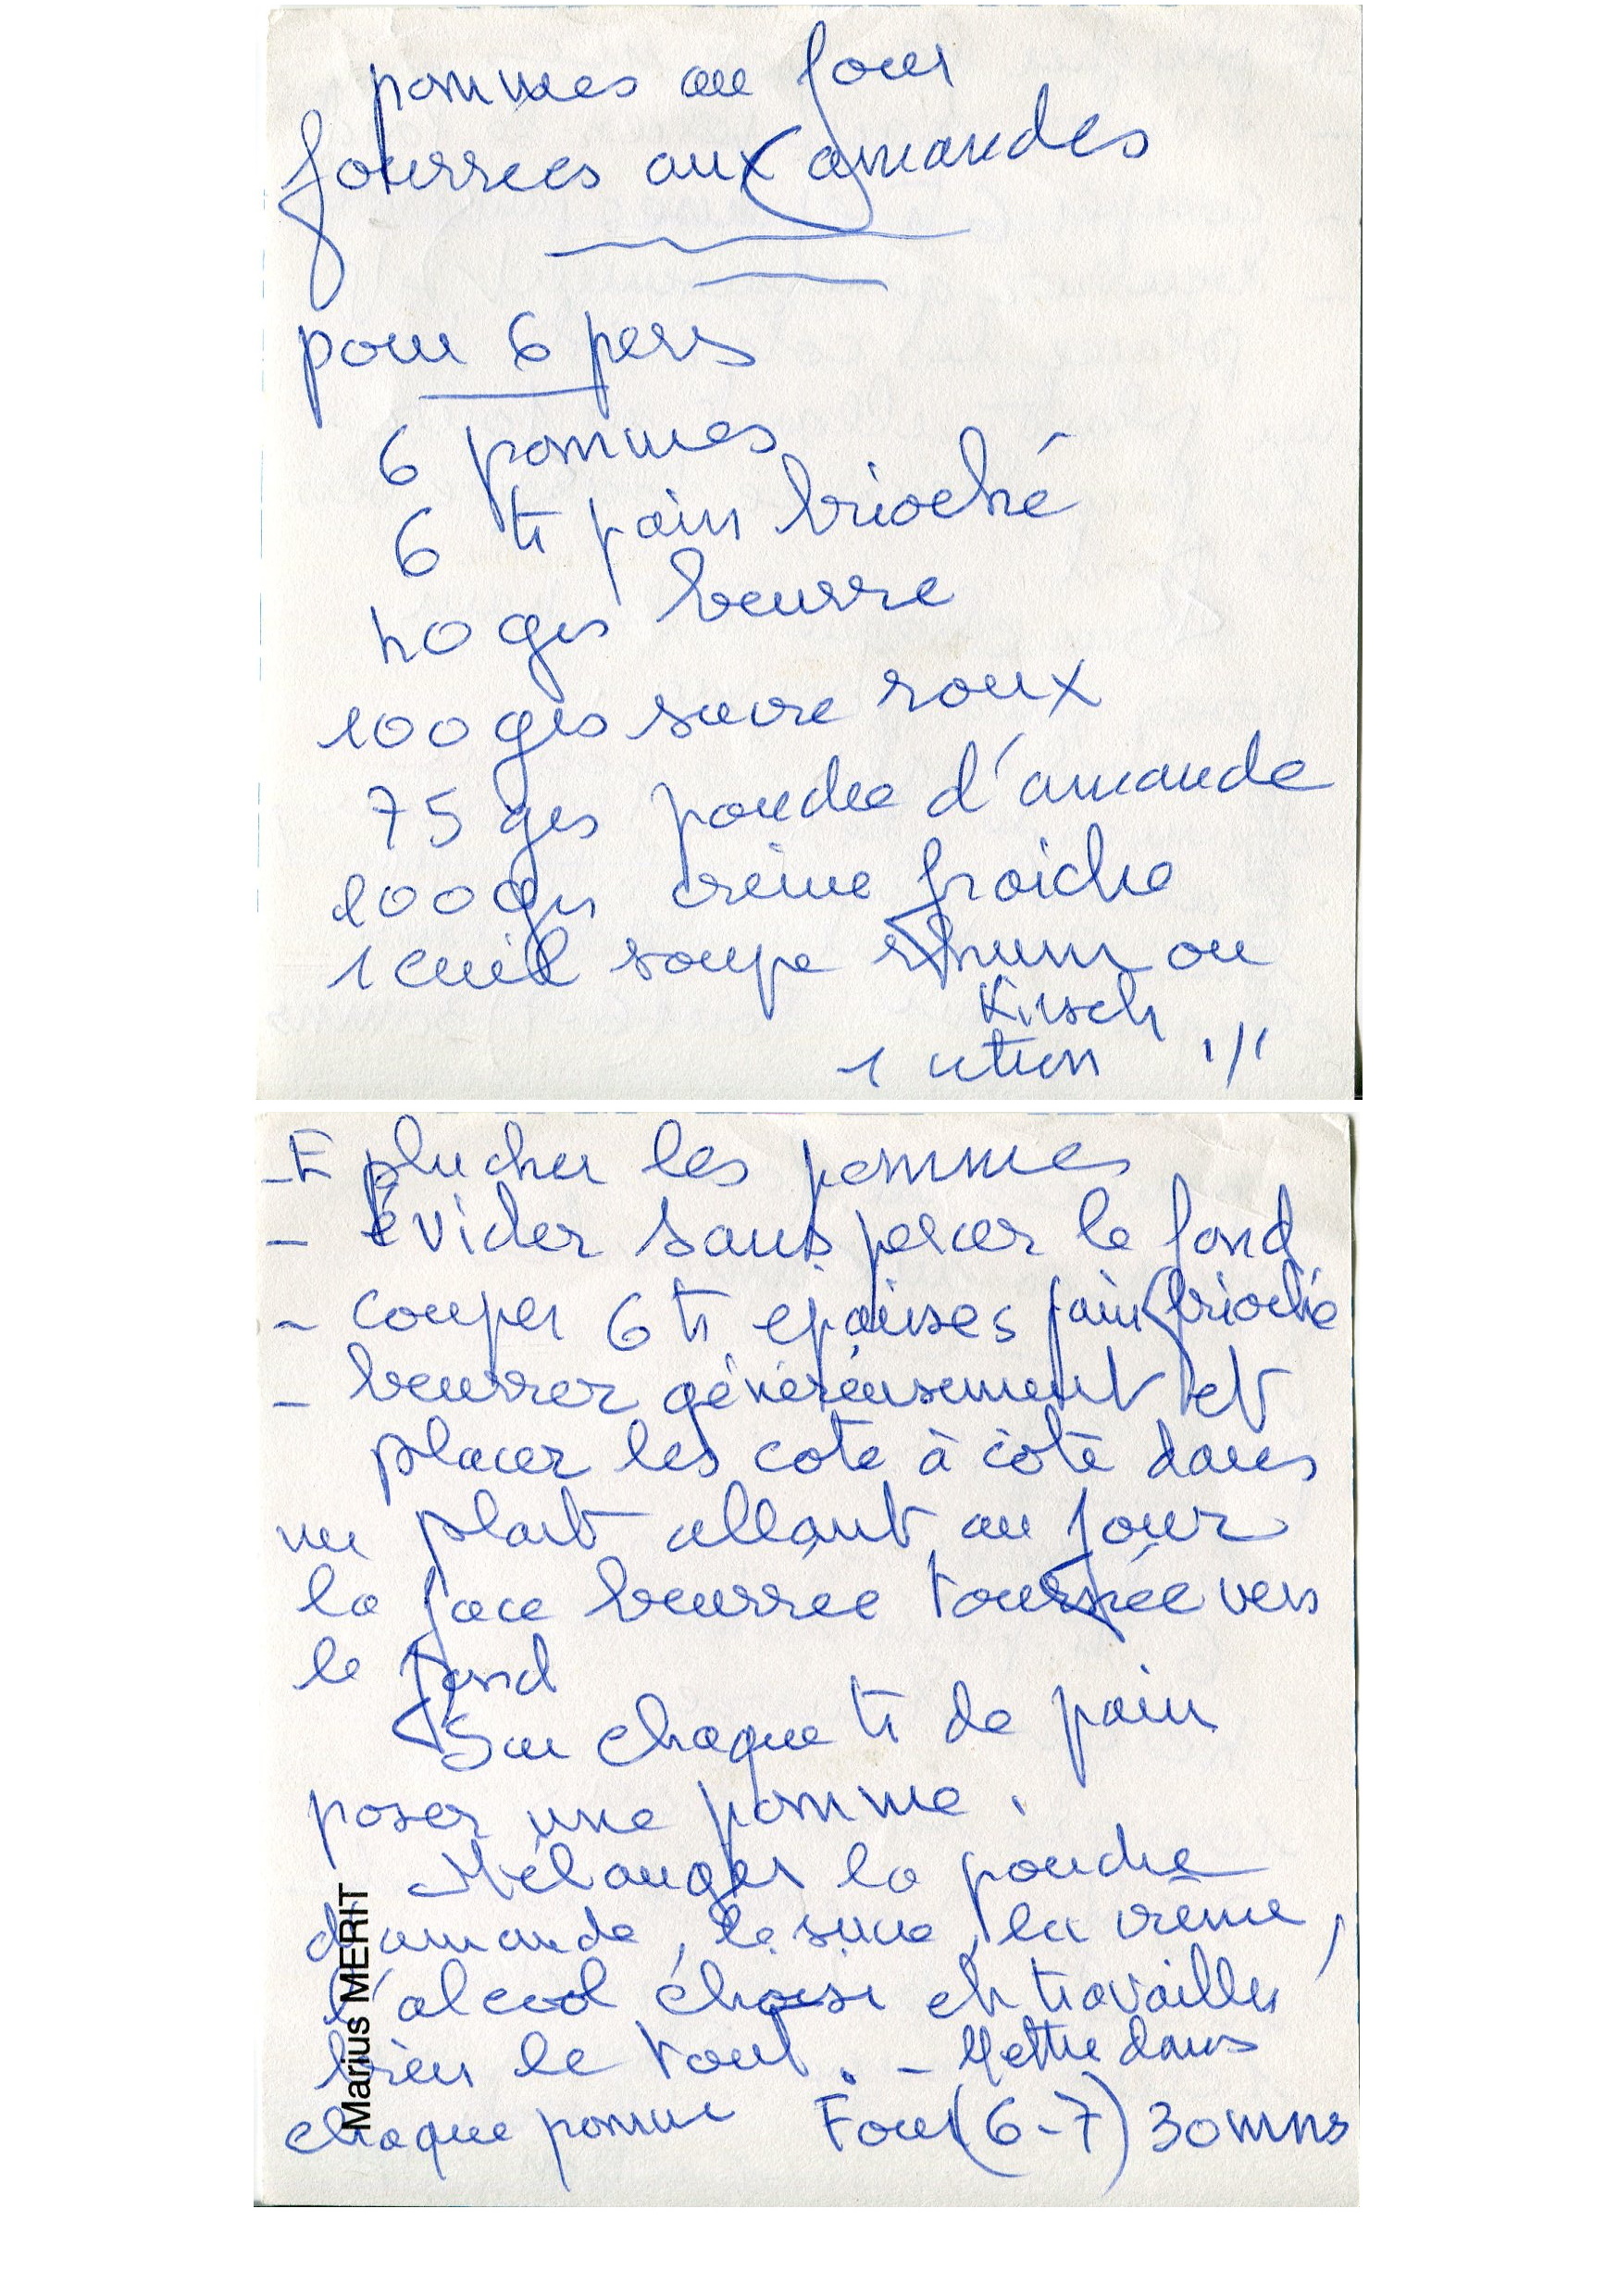 pommes au four
fourrees aux amandes
pour 6 pers
6 pommes
6 tr pain brioché
40 grs beurre
100 grs sucre roux
75 grs poudre d'amande
100 grs crème fraiche
1 cuil soupe rhum ou
Kirsch
1 citron
- Eplucher les pommes
- évider sans percer le fond
- couper 6 tr epaisses pain brioché
- beurrer généreusement et
placer les cote à côté dans
un plat allant au four
la face beurree tournée vers
le fond
Sur chaque tr de pain
poser une pomme.
Mélanger la poudre
d'amande, le sucre, la crème,
l'alcool choisi et travailler
bien le tout. - Mettre dans
chaque pomme Four (6-7) 30 mns
Marius MERIT